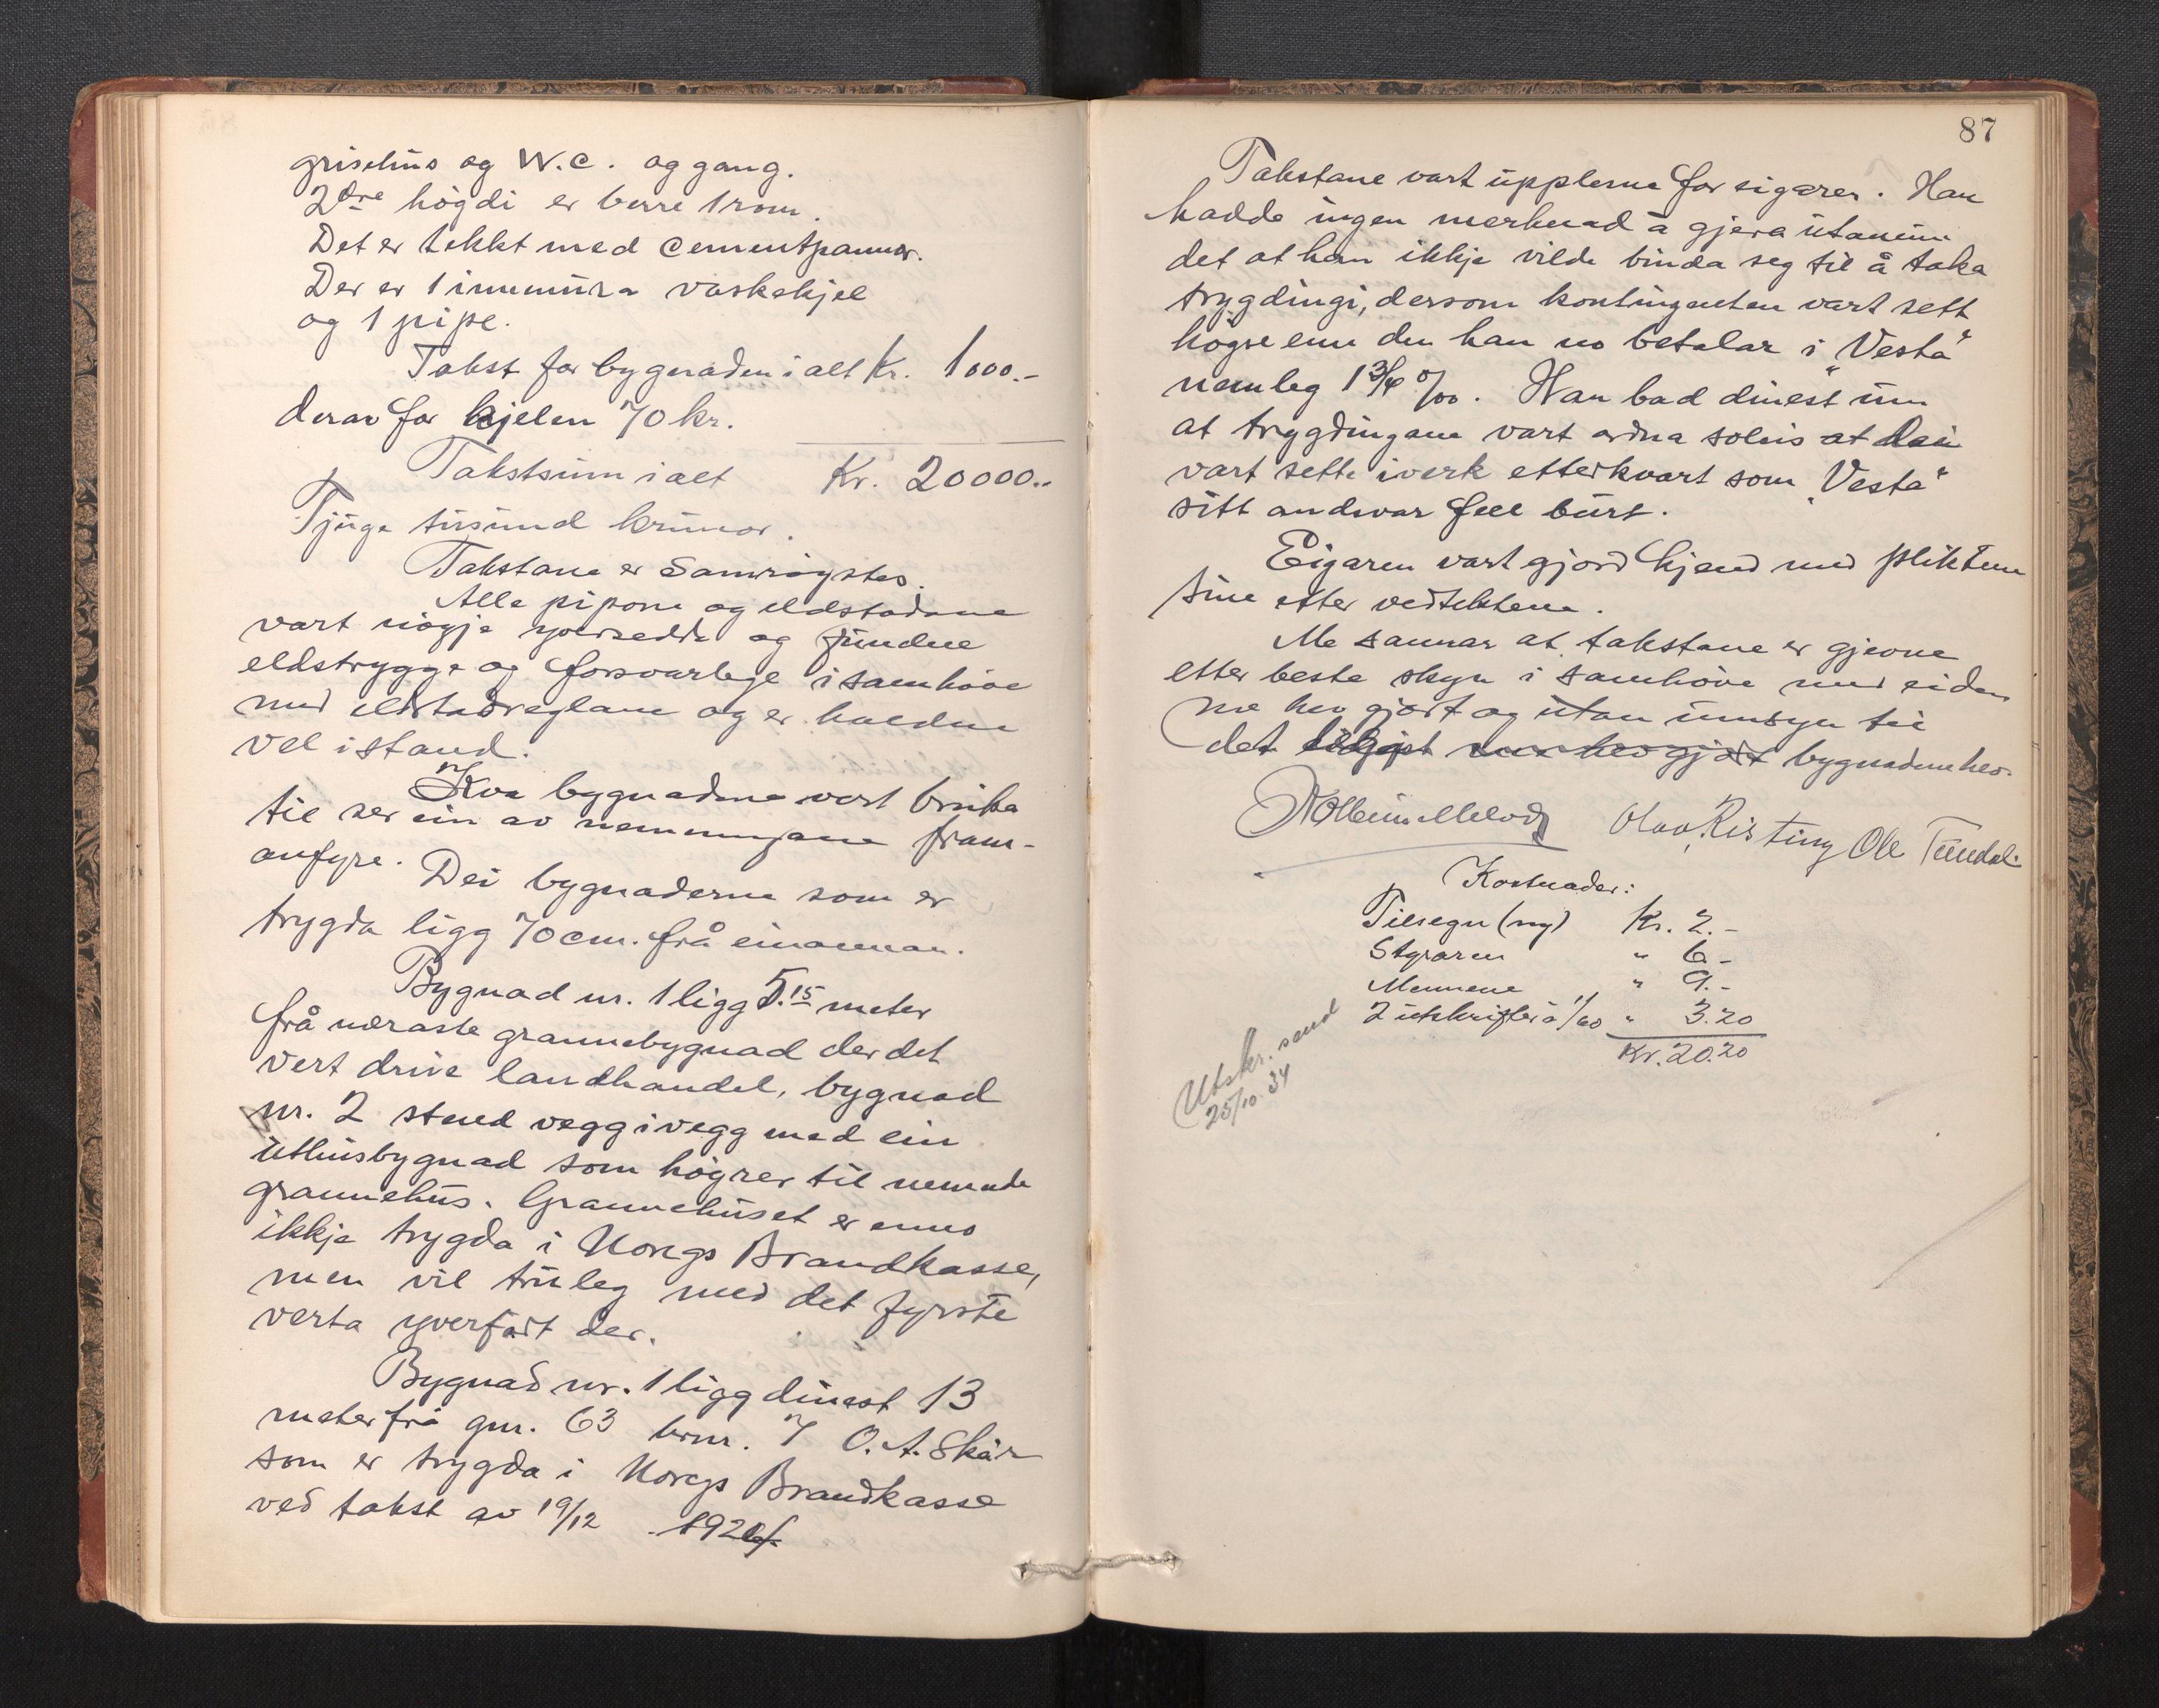 grisehus og W.C. og gang.
2dre högdi er berre 1 rom.
Det er tekkt med cementpannor.
Der er 1 innmura vaskekjel
og 1 pipe.
Takst for bygnaden i alt Kr. 1000.-
derav for kjelen 70 kr.
Takstsum i alt Kr. 20000.-
Tjuge tusund krunor.
Takstane er samröystes.
Alle pipone og eldstadane
vart nögje yversedde og fundne
eldstrygge og forsvarlege i samhöve
med eldstadreglane og er haldne
vel i stand.
Kva bygnadene vert bruka
til ser ein av nemningane fram-
anfyre. Dei bygnaderne som er
trygda ligg 70 cm. frå einannan.
Bygnad nr. 1 ligg 5.15 meter
frå næraste grannebygnad der det
vert drive landhandel, bygnad
nr. 2 stend vegg i vegg med ein
uthusbygnad som högrer til nemnde
grannehus. Grannehuset er enno
ikkje trygda i Noregs Brandkasse,
men vil truleg med det fyrste
verta yverfört der.
Bygnad nr. 1 ligg dinest 13
meter frå gnr. 63 brnr. 7 O. A. Skår
som er trygda i Noregs Brandkasse
ved takst av 19/12
87
Takstane vart upplesne for eigaren. Han
hadde ingen merknad å gjera utanum
det at han ikkje vilde binda seg til å taka
trygdingi, dersom kontingenten vart sett
högre enn den han no betalar i "Vesta"
nemleg 1 3/4 ‰. Han bad dinest um
at trygdingane vart ordna soleis at dei
vart sette i verk etterkvart som "Vesta"
sitt andsvar fell burt.
Eigaren vart gjord kjend med pliktene
sine etter vedtektene.
Me sannar at takstane er gjevne
etter beste skyn i samhöve med eiden
me hev gjort og utan umsyn til
det me hev gjort bygnadene hev.
Olav Risting Ole
Kostnader:
Tilsegn (ny) Kr. 2.-
Styraren " 6.-
Mennene " 9.-
2 utskrifter à 1/60 " 3.20
Kr. 20.20
Utskr. send
25/10.34